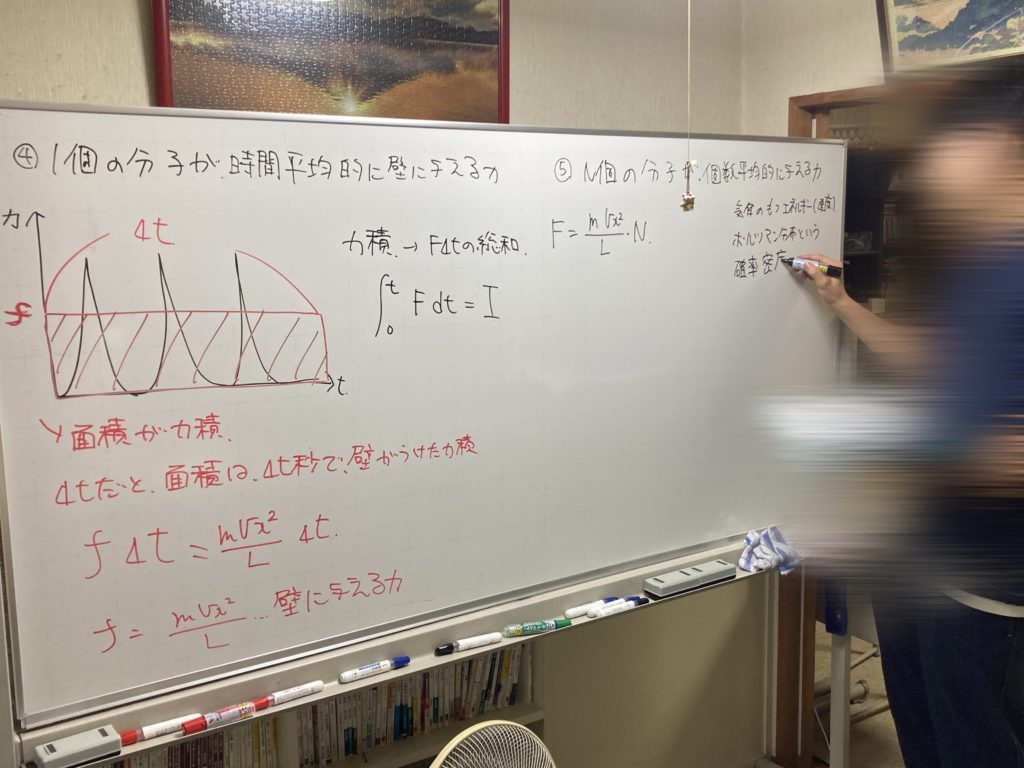 ④ 1個の分子が、時間平均的に壁に与える力
力
Δt
f
t
力積 → FΔtの総和
∫₀ᵗ F dt = I
面積が力積.
Δtだと、面積は、Δt秒で、壁がうけた力積
f Δt = mvx²/L Δt.
f = mvx²/L … 壁に与える力
⑤ N個の分子が、個数平均的に与える力
F = mvx²/L · N.
気体のもつエネルギー(速度)
ボルツマン分布という
確率密度